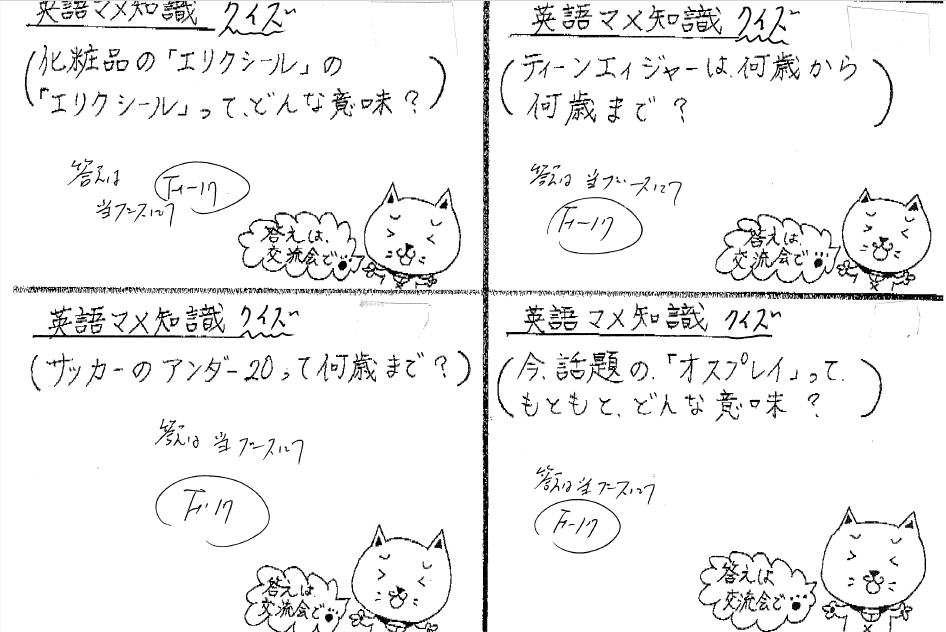 英語マメ知識 クイズ
(化粧品の「エリクシール」の
「エリクシール」って、どんな意味?)
答えは
当ブースにて
F-17
答えは、
交流会で
英語マメ知識 クイズ
(ティーンエィジャーは、何歳から
何歳まで?)
答えは 当ブースにて
F-17
答えは、
交流会で
英語マメ知識 クイズ
(サッカーのアンダー20って何歳まで?)
答えは 当ブースにて
F-17
答えは、
交流会で
英語マメ知識 クイズ
(今、話題の、「オスプレイ」って、
もともと、どんな意味?)
答えは当ブースにて
F-17
答えは
交流会で